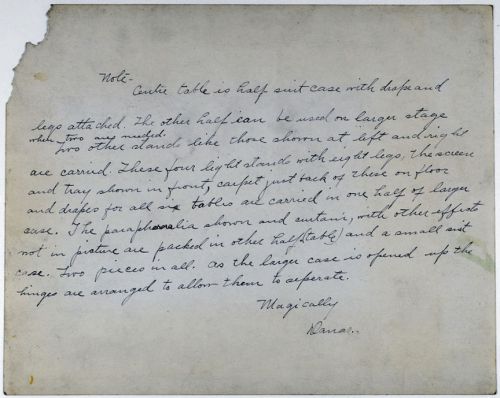 Note-
Centre table is half suit case with drape and
legs attached. The other half can be used on larger stage
when two are needed.
Two other stands like those shown at left and right
are carried. These four light stands with eight legs, the screen
and tray shown in front, carpet just back of these on floor
and drapes for all six tables are carried in one half of larger
case. The paraphenalia shown and curtain, with other effects
not in picture are packed in other half (table) and a small suit
case. Two pieces in all. As the larger case is opened up the
hinges are arranged to allow them to seperate.
Magically